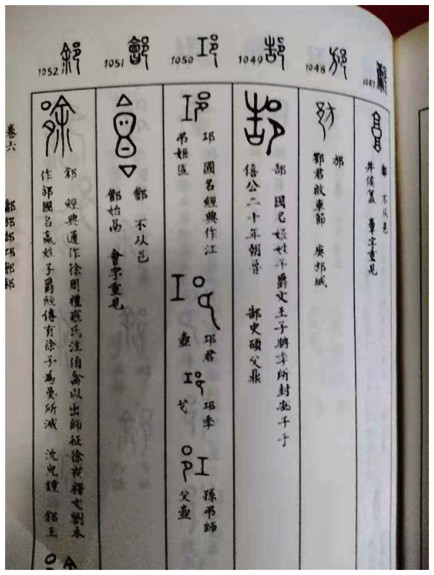 1047
不从邑
井侯簋 字重見
1048
邡
鄂君啟車節 庚邡城
1049
郜 國名姬姓子爵文王子所封
僖公二十年朝魯 郜史碩父鼎
1050
邛 國名經典作江
弔姬匜
邛君
壺
邛季
戈
孫弔師
父壺
1051
鄶 不从邑
鄶始鬲 會字重見
1052
䣄 經典通作徐周禮雍氏注伯禽以出師征徐戎釋文劉本
作䣄國名嬴姓子爵經傳有徐子為吳所滅 沇兒鐘 䣄王
卷六